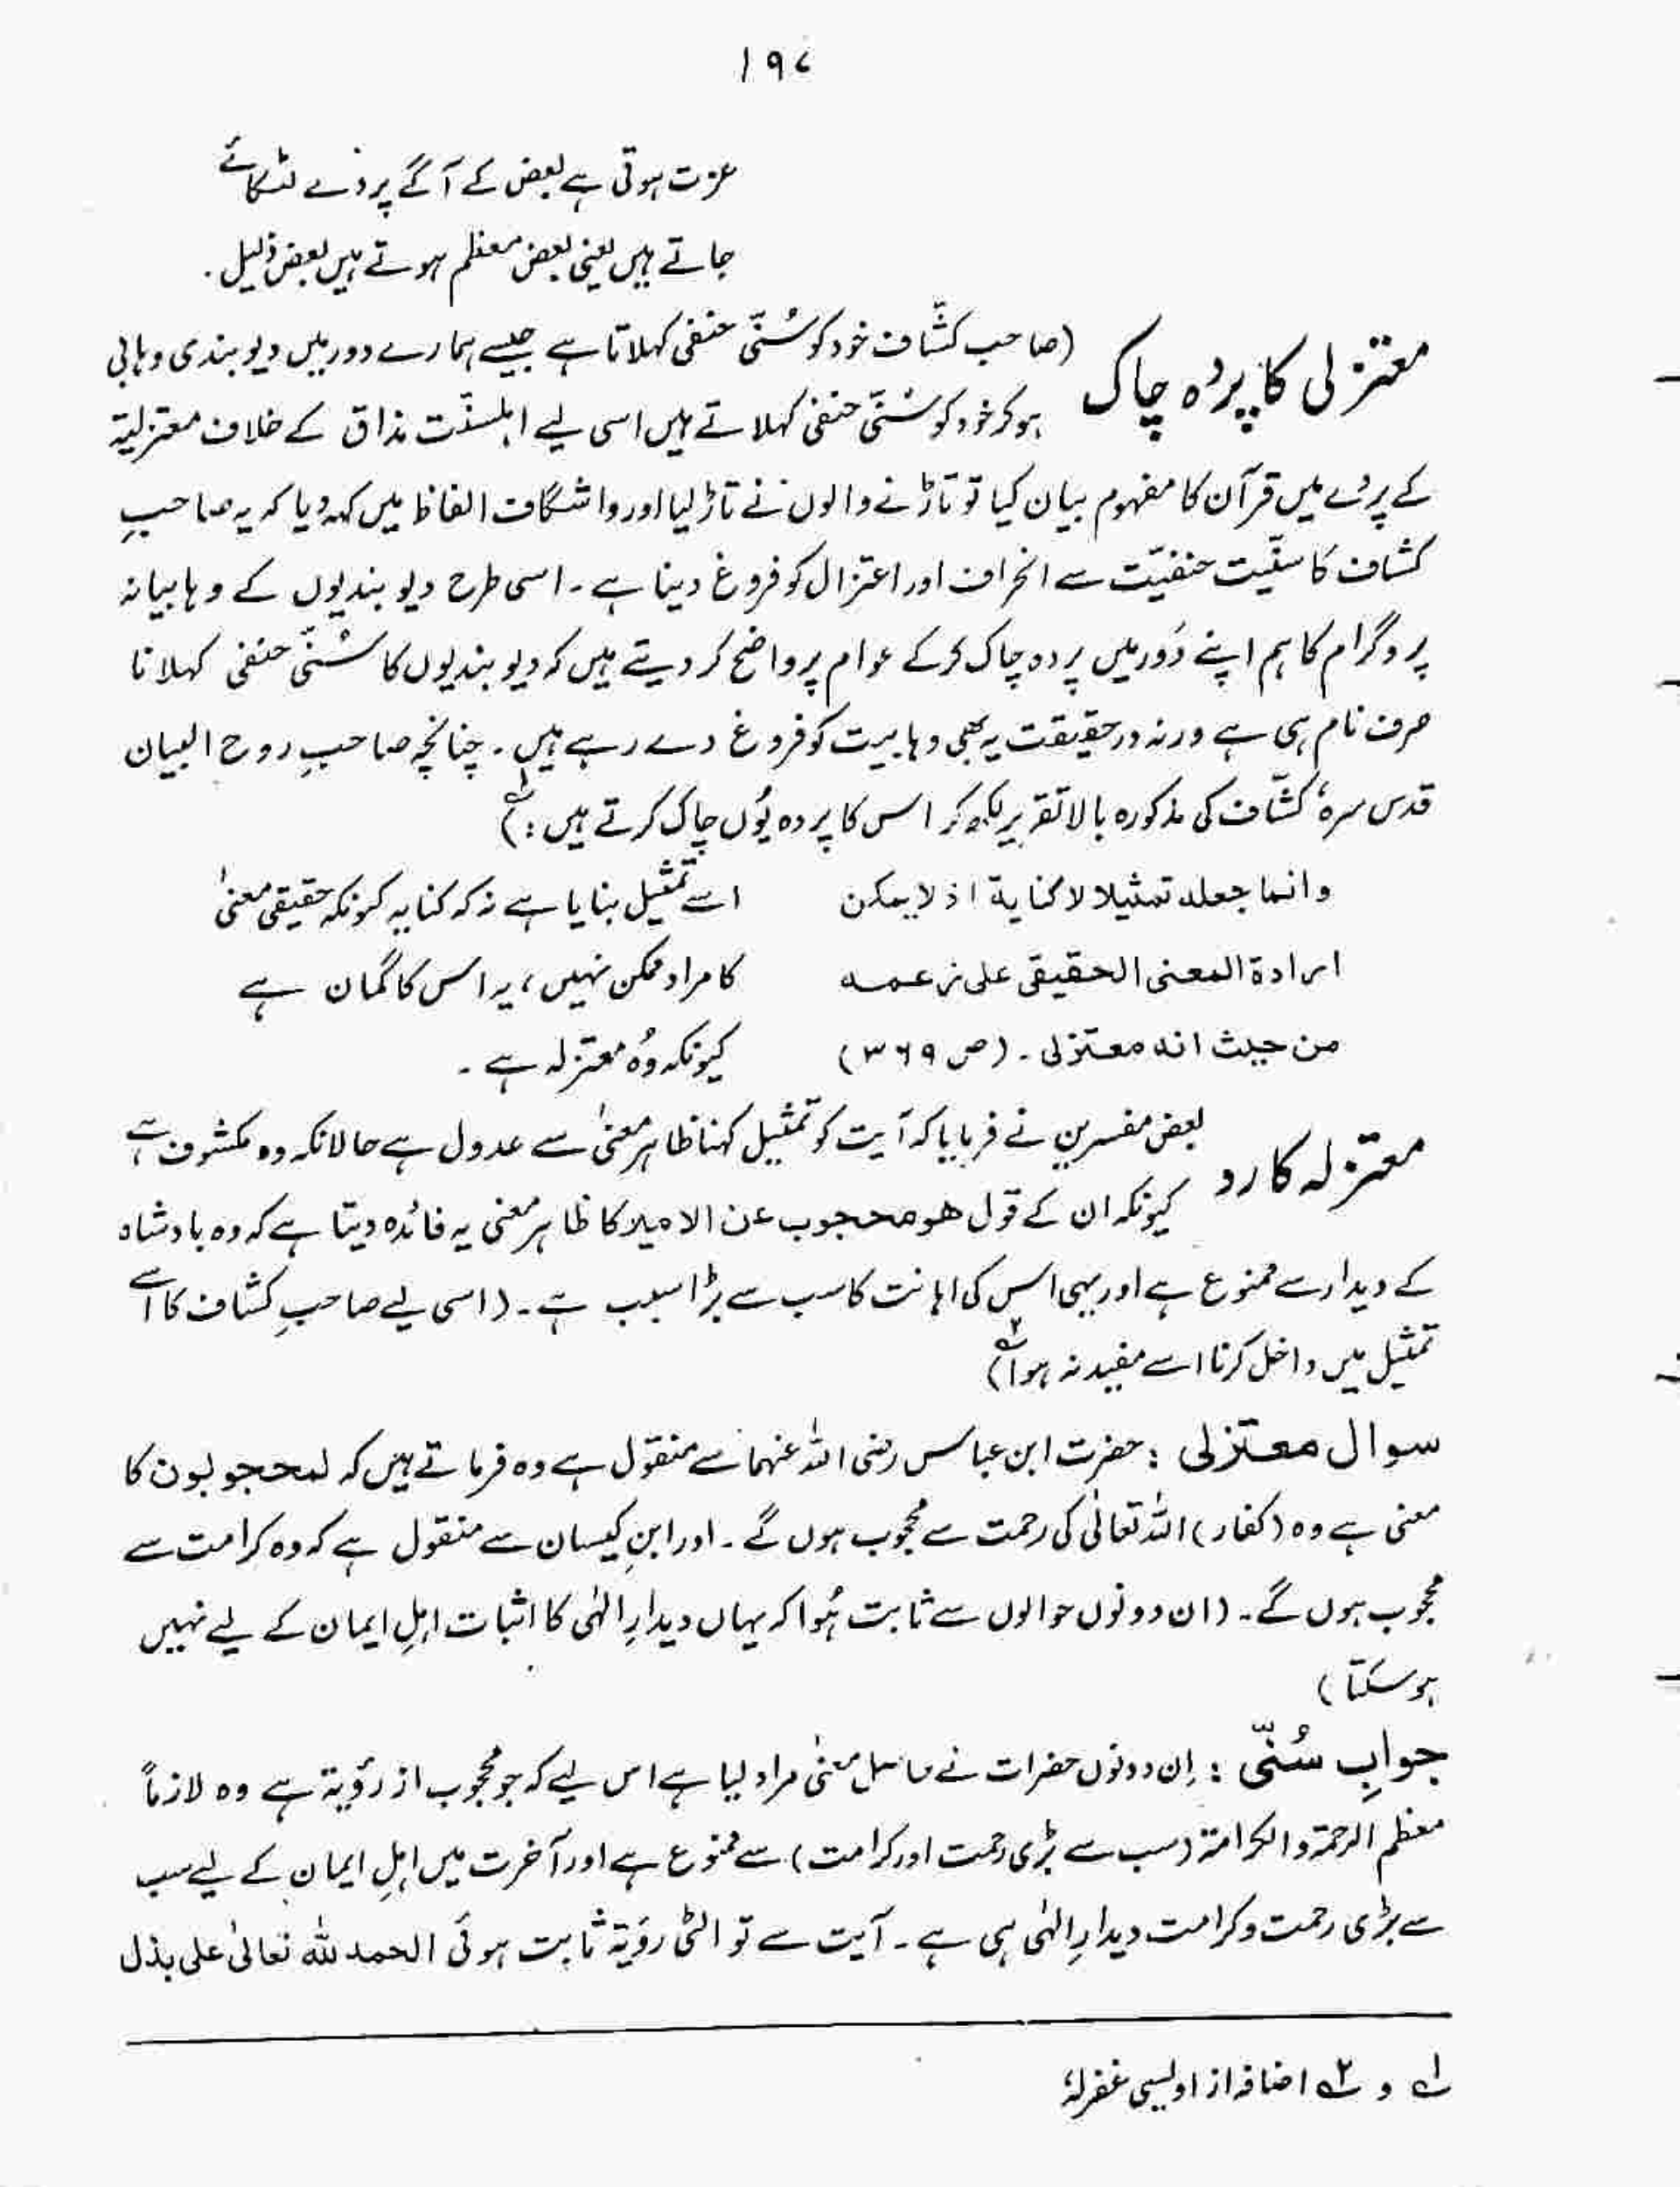 ۱۹۷
عزت ہوتی ہے بعض کے آگے پردے لٹکائے
جاتے ہیں یعنی بعض معظم ہوتے ہیں بعض ذلیل۔
معتزلی کا پردہ چاک (صاحب کشّاف خود کو سُنّی حنفی کہلاتا ہے جیسے ہمارے دور میں دیوبندی وہابی
ہو کر خود کو سُنّی حنفی کہلاتے ہیں اسی لیے اہلسنّت مذاق کے خلاف معتزلیۃ
کے پردے میں قرآن کا مفہوم بیان کیا تو تاڑنے والوں نے تاڑ لیا اور واشگاف الفاظ میں کہہ دیا کہ یہ صاحبِ
کشاف کا سنّیت حنفیّت سے انحراف اور اعتزال کو فروغ دینا ہے۔ اسی طرح دیوبندیوں کے وہابیانہ
پروگرام کا ہم اپنے دَور میں پردہ چاک کر کے عوام پر واضح کر دیتے ہیں کہ دیوبندیوں کا سُنّی حنفی کہلانا
صرف نام ہی ہے ورنہ درحقیقت یہ بھی وہابیت کو فروغ دے رہے ہیں۔ چنانچہ صاحبِ روح البیان
قدس سرہٗ کشّاف کی مذکورہ بالا تقریر لکھ کر اس کا پردہ یُوں چاک کرتے ہیں:)۱؎
وانما جعلہ تمثیلا لا کنایۃ اذ لا یمکن اسے تمثیل بنایا ہے نہ کہ کنایہ کیونکہ حقیقی معنیٰ
ارادۃ المعنی الحقیقی علی زعمہ کا مراد ممکن نہیں، یہ اس کا گمان ہے
من حیث انہ معتزلی۔ (ص ۳۶۹) کیونکہ وُہ معتزلہ ہے۔
معتزلہ کا رد بعض مفسرین نے فرمایا کہ آیت کو تمثیل کہنا ظاہر معنیٰ سے عدول ہے حالانکہ وہ مکشوف ہے
کیونکہ ان کے قول ھو محجوب عن الامیر کا ظاہر معنی یہ فائدہ دیتا ہے کہ وہ بادشاہ
کے دیدار سے ممنوع ہے اور یہی اس کی اہانت کا سب سے بڑا سبب ہے۔ (اسی لیے صاحبِ کشاف کا اسے
تمثیل میں داخل کرنا اسے مفید نہ ہوا)۲؎
سوال معتزلی : حضرت ابن عباس رضی اللہ عنہما سے منقول ہے وہ فرماتے ہیں کہ لمحجوبون کا
معنی ہے وہ (کفار) اللہ تعالٰی کی رحمت سے محجوب ہوں گے۔ اور ابنِ کیسان سے منقول ہے کہ وہ کرامت سے
محجوب ہوں گے۔ (ان دونوں حوالوں سے ثابت ہُوا کہ یہاں دیدارِ الٰہی کا اثبات اہلِ ایمان کے لیے نہیں
ہو سکتا)
جوابِ سُنّی : اِن دونوں حضرات نے حاصل معنیٰ مراد لیا ہے اس لیے کہ جو محجوب از رؤیۃ ہے وہ لازماً
معظم الرحمۃ والکرامۃ (سب سے بڑی رحمت اور کرامت) سے ممنوع ہے اور آخرت میں اہلِ ایمان کے لیے سب
سے بڑی رحمت و کرامت دیدارِ الٰہی ہی ہے۔ آیت سے تو الٹی رؤیۃ ثابت ہوئی الحمد للہ تعالیٰ علی بذل
۱؎ و ۲؎ اضافہ از اویسی غفرلہٗ